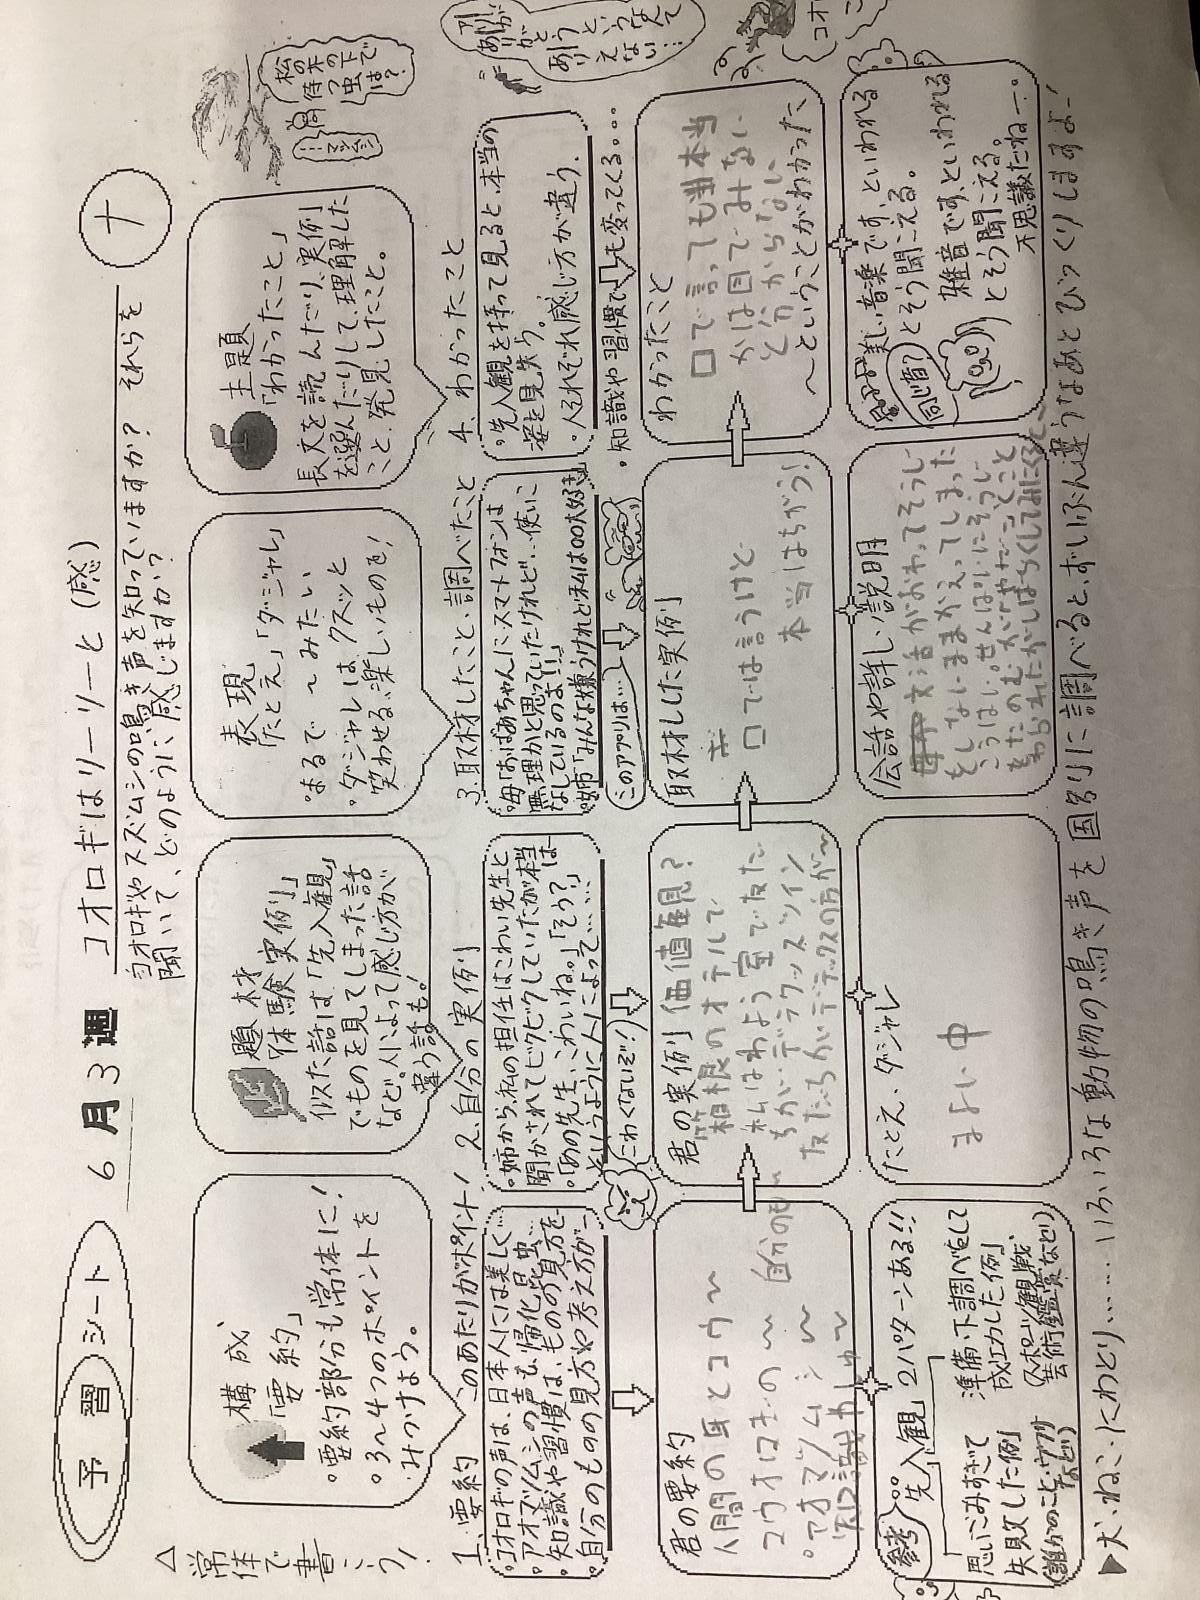 予習シート
6月3週
コオロギはリーリーと(感)
ナ
コオロギやスズムシの鳴き声を知っていますか? それらを
聞いて、どのように感じますか?
△常体で書こう!
構成
「要約」
・要約部分も常体に!
・3〜4つのポイントを
みつけよう。
題材
「体験実例」
似た話は「先入観」
でものを見てしまった話
など。人によって感じ方が
違う話も!
表現
「たとえ」「ダジャレ」
・まるで〜みたい
・ダジャレは、クスッと
笑わせる、楽しいものを!
主題
「わかったこと」
長文を読んだり、実例
を選んだりして、理解した
こと、発見したこと。
松の木の下で
待つ虫
では?
1.要約 このあたりがポイント!
・コオロギの声は、日本人には美しく
・アオマツムシの声も、帰化昆虫…
・知識や習慣は、ものの見方を…
・自分のものの見方や考え方が…
2.自分の実例
・姉から、私の担任はこわい先生と
聞かされてビクビクしていたが本当は…
・「あの先生、こわいね。」「そう?」
というように人によって……
こわくないぞ!
3.取材したこと・調べたこと
・母「おばあちゃんにスマートフォンは
無理かと思っていたけれど…使いこ
なしているのよ!!」
・姉「みんな嫌うけれど私は〇〇大好き」
このアプリは…
4.わかったこと
・先入観を持って見ると、本当の
姿を見失う。
・人それぞれ感じ方が違う。
・知識や習慣でも変ってくる。。。
君の要約
人間の耳とコウ〜
コウオロギの〜 自分のも〜
・アオマツムシ〜
知識やしゅ〜
君の実例 価値観?
箱根のホテルで
私はわよう室で友た
ちがい デラックスツイン
友だちがいデラックスの方が〜
取材した実例
口では言うけど
本当はちがう!
わかったこと
口で言っても本当
かは目でみない
と分からない
〜ということがわかった
参考
「先入観」2パターンある!!
思いこみすぎて
失敗した例
(誰かのこと・ウワサ
など)
準備・下調べをして
成功した例
(スポーツ観戦、
芸術鑑賞など)
たとえ、ダジャレ
まよい中
会話や詳しい説明
美しい音楽です、といわれる
とそう聞こえる。
同じ音?
雑音です、といわれる
とそう聞こえる。
不思議だねー。
▶犬・ねこ・にわとり……いろいろな動物の鳴き声を国別に調べると、ずいぶん違うなあとびっくりしますよ!